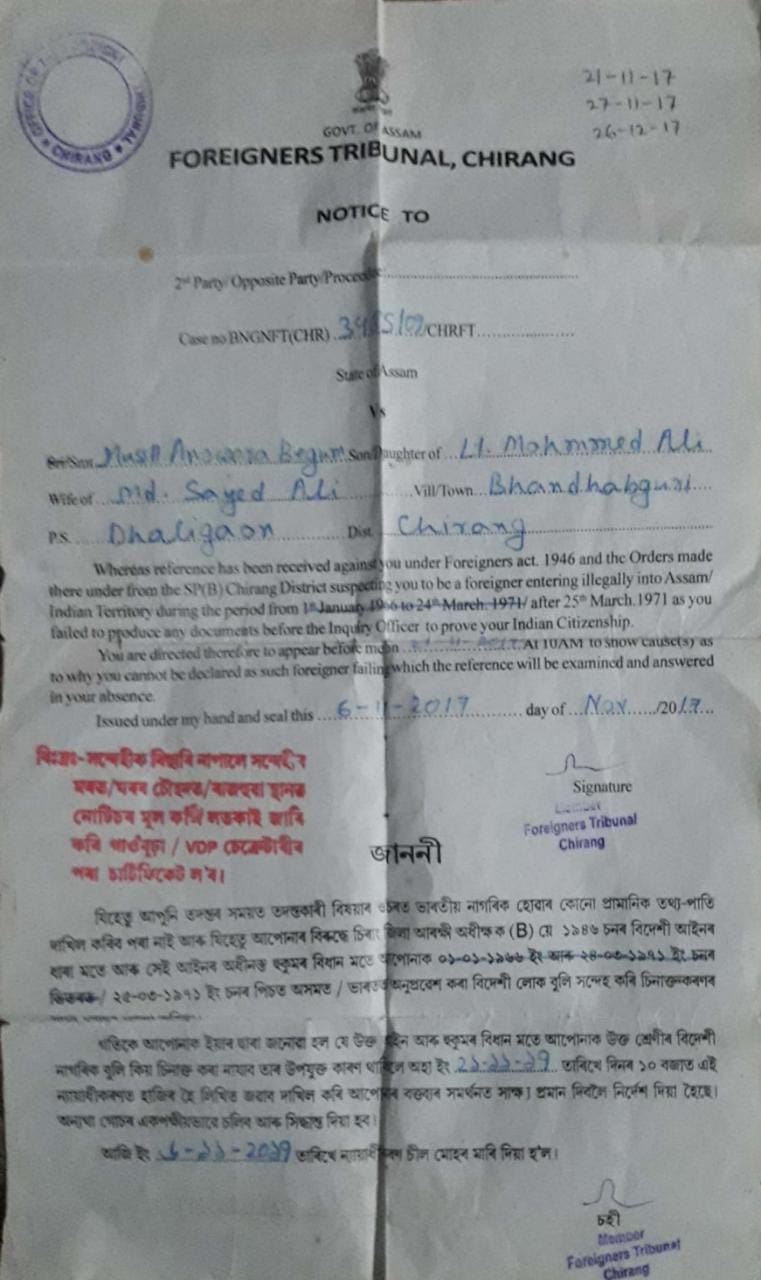 OFFICE OF
TRIBUNAL
★ CHIRANG ★
21-11-17
27-11-17
26-12-17
GOVT. OF ASSAM
FOREIGNERS TRIBUNAL, CHIRANG
NOTICE TO
2nd Party/Opposite Party/Proceedee..............................
Case no BNGNFT(CHR) /CHRFT....................
State of Assam
Vs
Sri/Smt Musst Anowara Begum Son/Daughter of Lt. Mohmmed Ali
Wife of Md. Sayed Ali Vill/Town Bhandhabguri
P.S. Dhaligaon Dist. Chirang
Whereas reference has been received against you under Foreigners act. 1946 and the Orders made
there under from the SP(B) Chirang District suspecting you to be a foreigner entering illegally into Assam/
Indian Territory during the period from 1st January 1966 to 24th March. 1971/ after 25th March.1971 as you
failed to produce any documents before the Inquiry Officer to prove your Indian Citizenship.
You are directed therefore to appear before me on At 10AM to show cause(s) as
to why you cannot be declared as such foreigner failing which the reference will be examined and answered
in your absence.
Issued under my hand and seal this 6-11-2017 day of Nov /2017
বিঃদ্ৰঃ-সন্দেহীক বিচাৰি নাপালে সন্দেহীৰ
ঘৰত/ঘৰৰ চৌহদত/ৰাজহুৱা স্থানত
নোটিচৰ মূল কপি লতকাই জাৰি
কৰি গাওঁবুঢ়া / VDP চেক্ৰেটাৰীৰ
পৰা চাৰ্টিফিকেট ল'ব।
Signature
Member
Foreigners Tribunal
Chirang
জাননী
যিহেতু আপুনি তদন্তৰ সময়ত তদন্তকাৰী বিষয়াৰ ওচৰত ভাৰতীয় নাগৰিক হোৱাৰ কোনো প্ৰামানিক তথ্য-পাতি
দাখিল কৰিব পৰা নাই আৰু যিহেতু আপোনাৰ বিৰুদ্ধে চিৰাং জিলা আৰক্ষী অধীক্ষক (B) যে ১৯৪৬ চনৰ বিদেশী আইনৰ
ধাৰা মতে আৰু সেই আইনৰ অধীনত হুকুমৰ বিধান মতে আপোনাক ০১-০১-১৯৬৬ ইং আৰু ২৪-০৩-১৯৭১ ইং চনৰ
ভিতৰত / ২৫-০৩-১৯৭১ ইং চনৰ পিচত অসমত / ভাৰতত অনুপ্ৰবেশ কৰা বিদেশী লোক বুলি সন্দেহ কৰি চিনাক্তকৰণৰ
গতিকে আপোনাক ইয়াৰ দ্বাৰা জনোৱা হল যে উক্ত আইন আৰু হুকুমৰ বিধান মতে আপোনাক উক্ত শ্ৰেণীৰ বিদেশী
নাগৰিক বুলি কিয় চিনাক্ত কৰা নাযাব তাৰ উপযুক্ত কাৰণ থাকিলে অহা ইং ২১-১১-১৭ তাৰিখে দিনৰ ১০ বজাত এই
ন্যায়াধীকৰণত হাজিৰ হৈ লিখিত জবাব দাখিল কৰি আপোনাৰ বক্তব্যৰ সমৰ্থনত সাক্ষ্য প্ৰমান দিবলৈ নিৰ্দেশ দিয়া হৈছে।
অন্যথা গোচৰ একপক্ষীয়ভাৱে চলিব আৰু সিদ্ধান্ত দিয়া হব।
আজি ইং ৬-১১-২০১৭ তাৰিখে ন্যায়াধীকৰণ চীল মোহৰ মাৰি দিয়া হ'ল।
চহী
Member
Foreigners Tribunal
Chirang